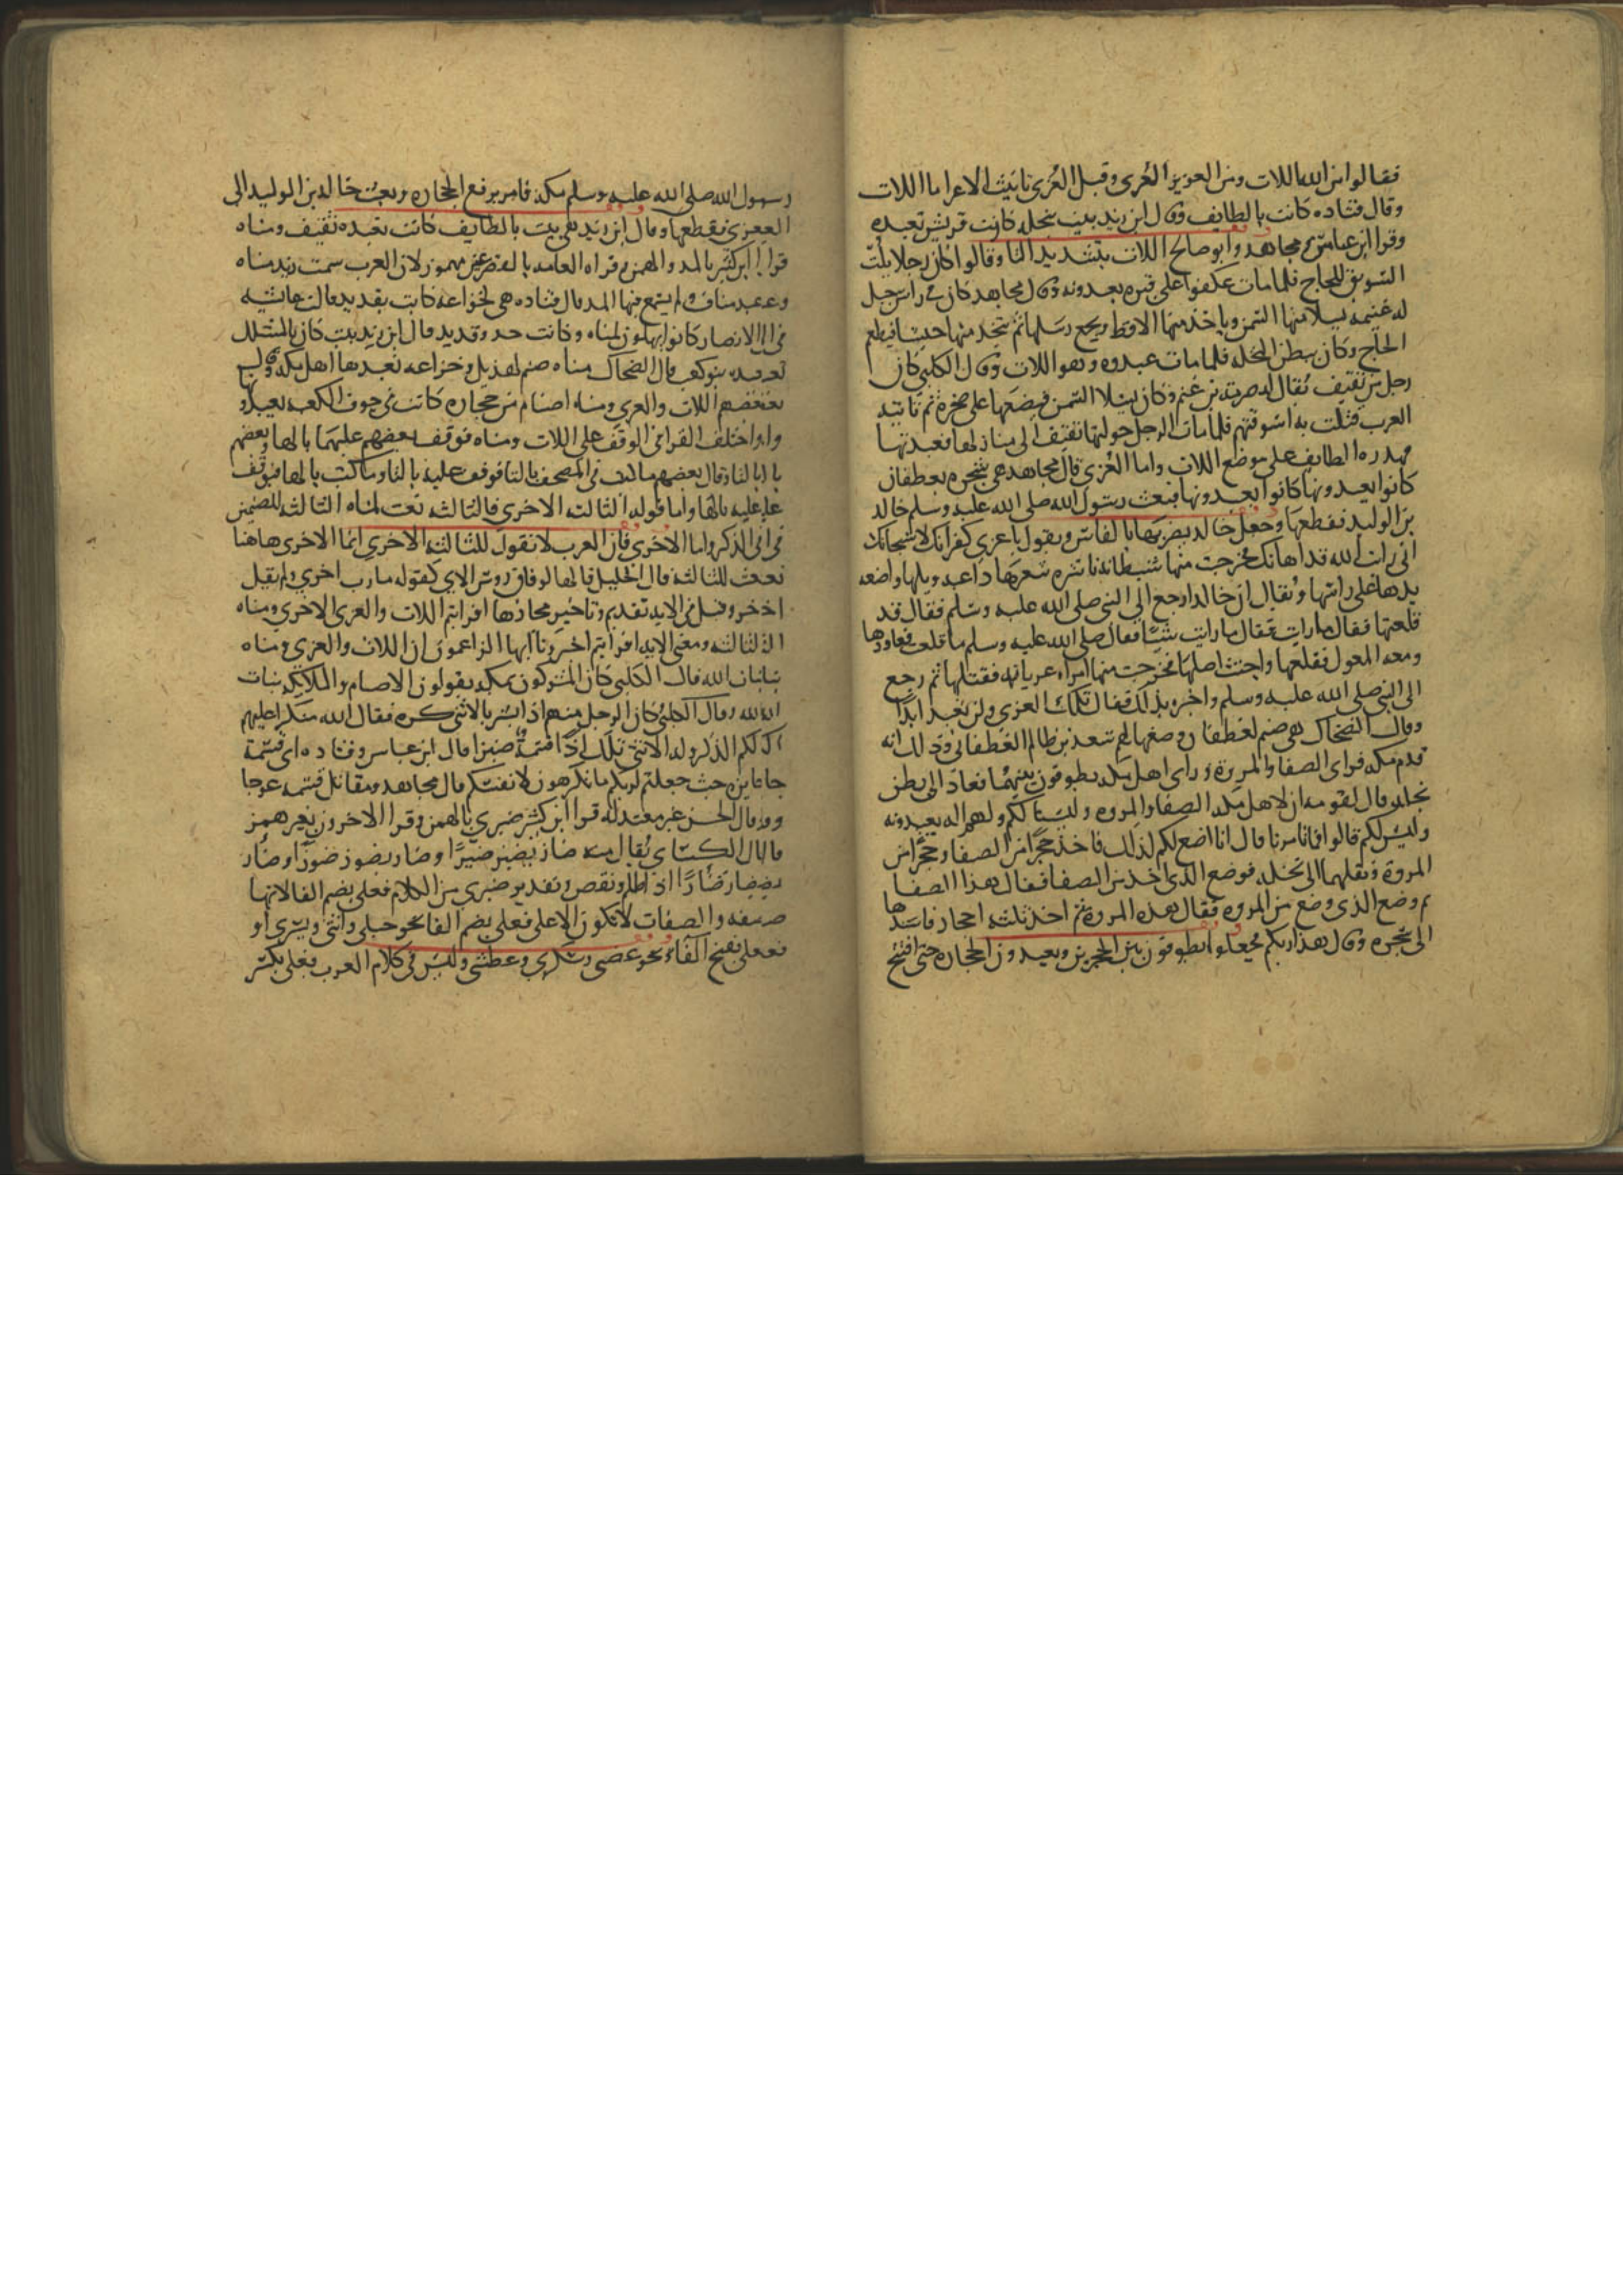 فقالوا من الله اللات ومن العزيز العزى وقيل العزى تانيث الاعز اما اللات
وقال قتاده كانت بالطايف وقال ابن زيد بيت بنخله كانت قريش تعبده
وقرا ابن عباس ومجاهد وابو صالح اللات بتشديد التا وقالوا كان رجلا يلت
السويق للحاج فلما مات عكفوا على قبره يعبدونه وقال مجاهد كان في راس جبل
له غنيمه يسلا منها السمن وياخذ منها الاقط ويجمع رسلها ثم يتخذ منها حيسا فيطعم
الحاج وكان ببطن النخله فلما مات عبدوه وهو اللات وقال الكلبي كان
رجل من ثقيف يقال له صرمة بن غنم وكان يسلا السمن فيضعها على صخرة ثم تاتيه
العرب فتلت به اسوقتهم فلما مات الرجل حولتها ثقيف الى منازلها فعبدتها
الطايف على موضع اللات واما العزى قال مجاهد هي شجره بغطفان
كانوا يعبدونها فبعث رسول الله صلى الله عليه وسلم خالد
بن الوليد فقطعها وجعل خالد يضربها بالفاس ويقول يا عزى كفرانك لا سبحانك
اني رايت الله قد اهانك فخرجت منها شيطانه ناشره شعرها داعيه ويلها واضعه
يدها على راسها ويقال ان خالدا رجع الى النبي صلى الله عليه وسلم فقال قد
قلعتها فقال ما رايت فقال ما رايت شيئا فقال صلى الله عليه وسلم ما قلعت فعاودها
ومعه المعول فقلعها واجتث اصلها فخرجت منها امراه عريانه فقتلها ثم رجع
الى النبي صلى الله عليه وسلم واخبره بذلك فقال تلك العزى ولن تعبد ابدا
وقال الضحاك هي صنم لغطفان وضعها لهم سعد بن ظالم الغطفاني وذلك انه
قدم مكه فراى الصفا والمروة وراى اهل مكه يطوفون بينهما فعاد الى بطن
نخله وقال لقومه ان لاهل مكه الصفا والمروه وليستا لكم ولهم اله يعبدونه
وليس لكم قالوا فما تامرنا قال انا اصنع لكم لذلك فاخذ حجرا من الصفا وحجرا من
المروة ونقلهما الى نخله فوضع الذي اخذ من الصفا فقال هذا الصفا
ثم وضع الذي وضع من المروه فقال هذه المروة ثم اخذ ثلثه احجار فاسندها
الى شجره وقال هذا ربكم فجعلوا يطوفون بين الحجرين ويعبدون الحجاره حتى افتتح
رسول الله صلى الله عليه وسلم مكه فامر برفع الحجاره وبعث خالد بن الوليد الى
العزى فقطعها وقال ابن زيد هي بيت بالطايف كانت تعبده ثقيف ومناه
قرا ابن كثير بالمد والهمز وقراه العامه بالقصر غير مهموز لان العرب سمت زيد مناه
وعبد مناه ولم يسمع فيها المد قال قتاده هي لخزاعه كانت بقديد قالت عايشه
في الانصار كانوا يهلون لمناه وكانت حذو قديد قال ابن زيد بيت كان بالمشلل
تعبده بنو كعب قال الضحاك مناه صنم لهذيل وخزاعه تعبدها اهل مكه وقال
بعضهم اللات والعزى ومناه اصنام من حجاره كانت في جوف الكعبه يعبدو
واختلف القرا في الوقف على اللات ومناه فوقف بعضهم عليهما بالها وبعضهم
بالتا وقال بعضهم ما كتب في المصحف بالتا فوقف عليه بالتا وما كتب بالها فيوقف
عليه بالها واما قوله الثالثه الاخرى فالثالثه نعت لمناه الثالثه للصنمين
في الذكر واما الاخرى فان العرب لا تقول للثالثه الاخرى انما الاخرى هاهنا
نعت للثانية قال الخليل قالها لوفاق روس الاي كقوله مارب اخرى ولم يقل
اخر وقيل في الايه تقديم وتاخير مجازها افرايتم اللات والعزى الاخرى ومناه
الثالثه ومعنى الايه افرايتم اخبرونا ايها الزاعمون ان اللات والعزى ومناه
بنات الله قال الكلبي كان المشركون بمكه يقولون الاصنام والملايكه بنات
الله وقال الكلبي كان الرجل منهم اذا بشر بالانثى كره فقال الله منكرا عليهم
الكم الذكر وله الانثى تلك اذا قسمة ضيزا قال ابن عباس وقتاده اي قسمة
جايره حيث جعلتم لربكم ما تكرهون لانفسكم قال مجاهد ومقاتل قسمه عوجا
وقال الحسن غير معتدله قرا ابن كثير ضيزى بالهمز وقرا الاخرون بغير همز
قال الكساي يقال منه ضاز يضيز ضيزا وضاز يضوز ضوزا وضاز
يضاز ضازا اذا ظلم ونقص وتقدير ضيزى من الكلام فعلى بضم الفا لانها
صفه والصفات لا تكون الا على فعلى بضم الفا نحو حبلى وانثى وبشرى او
فعلى بفتح الفا نحو غضبى وسكرى وعطشى وليس في كلام العرب فعلى بكسر